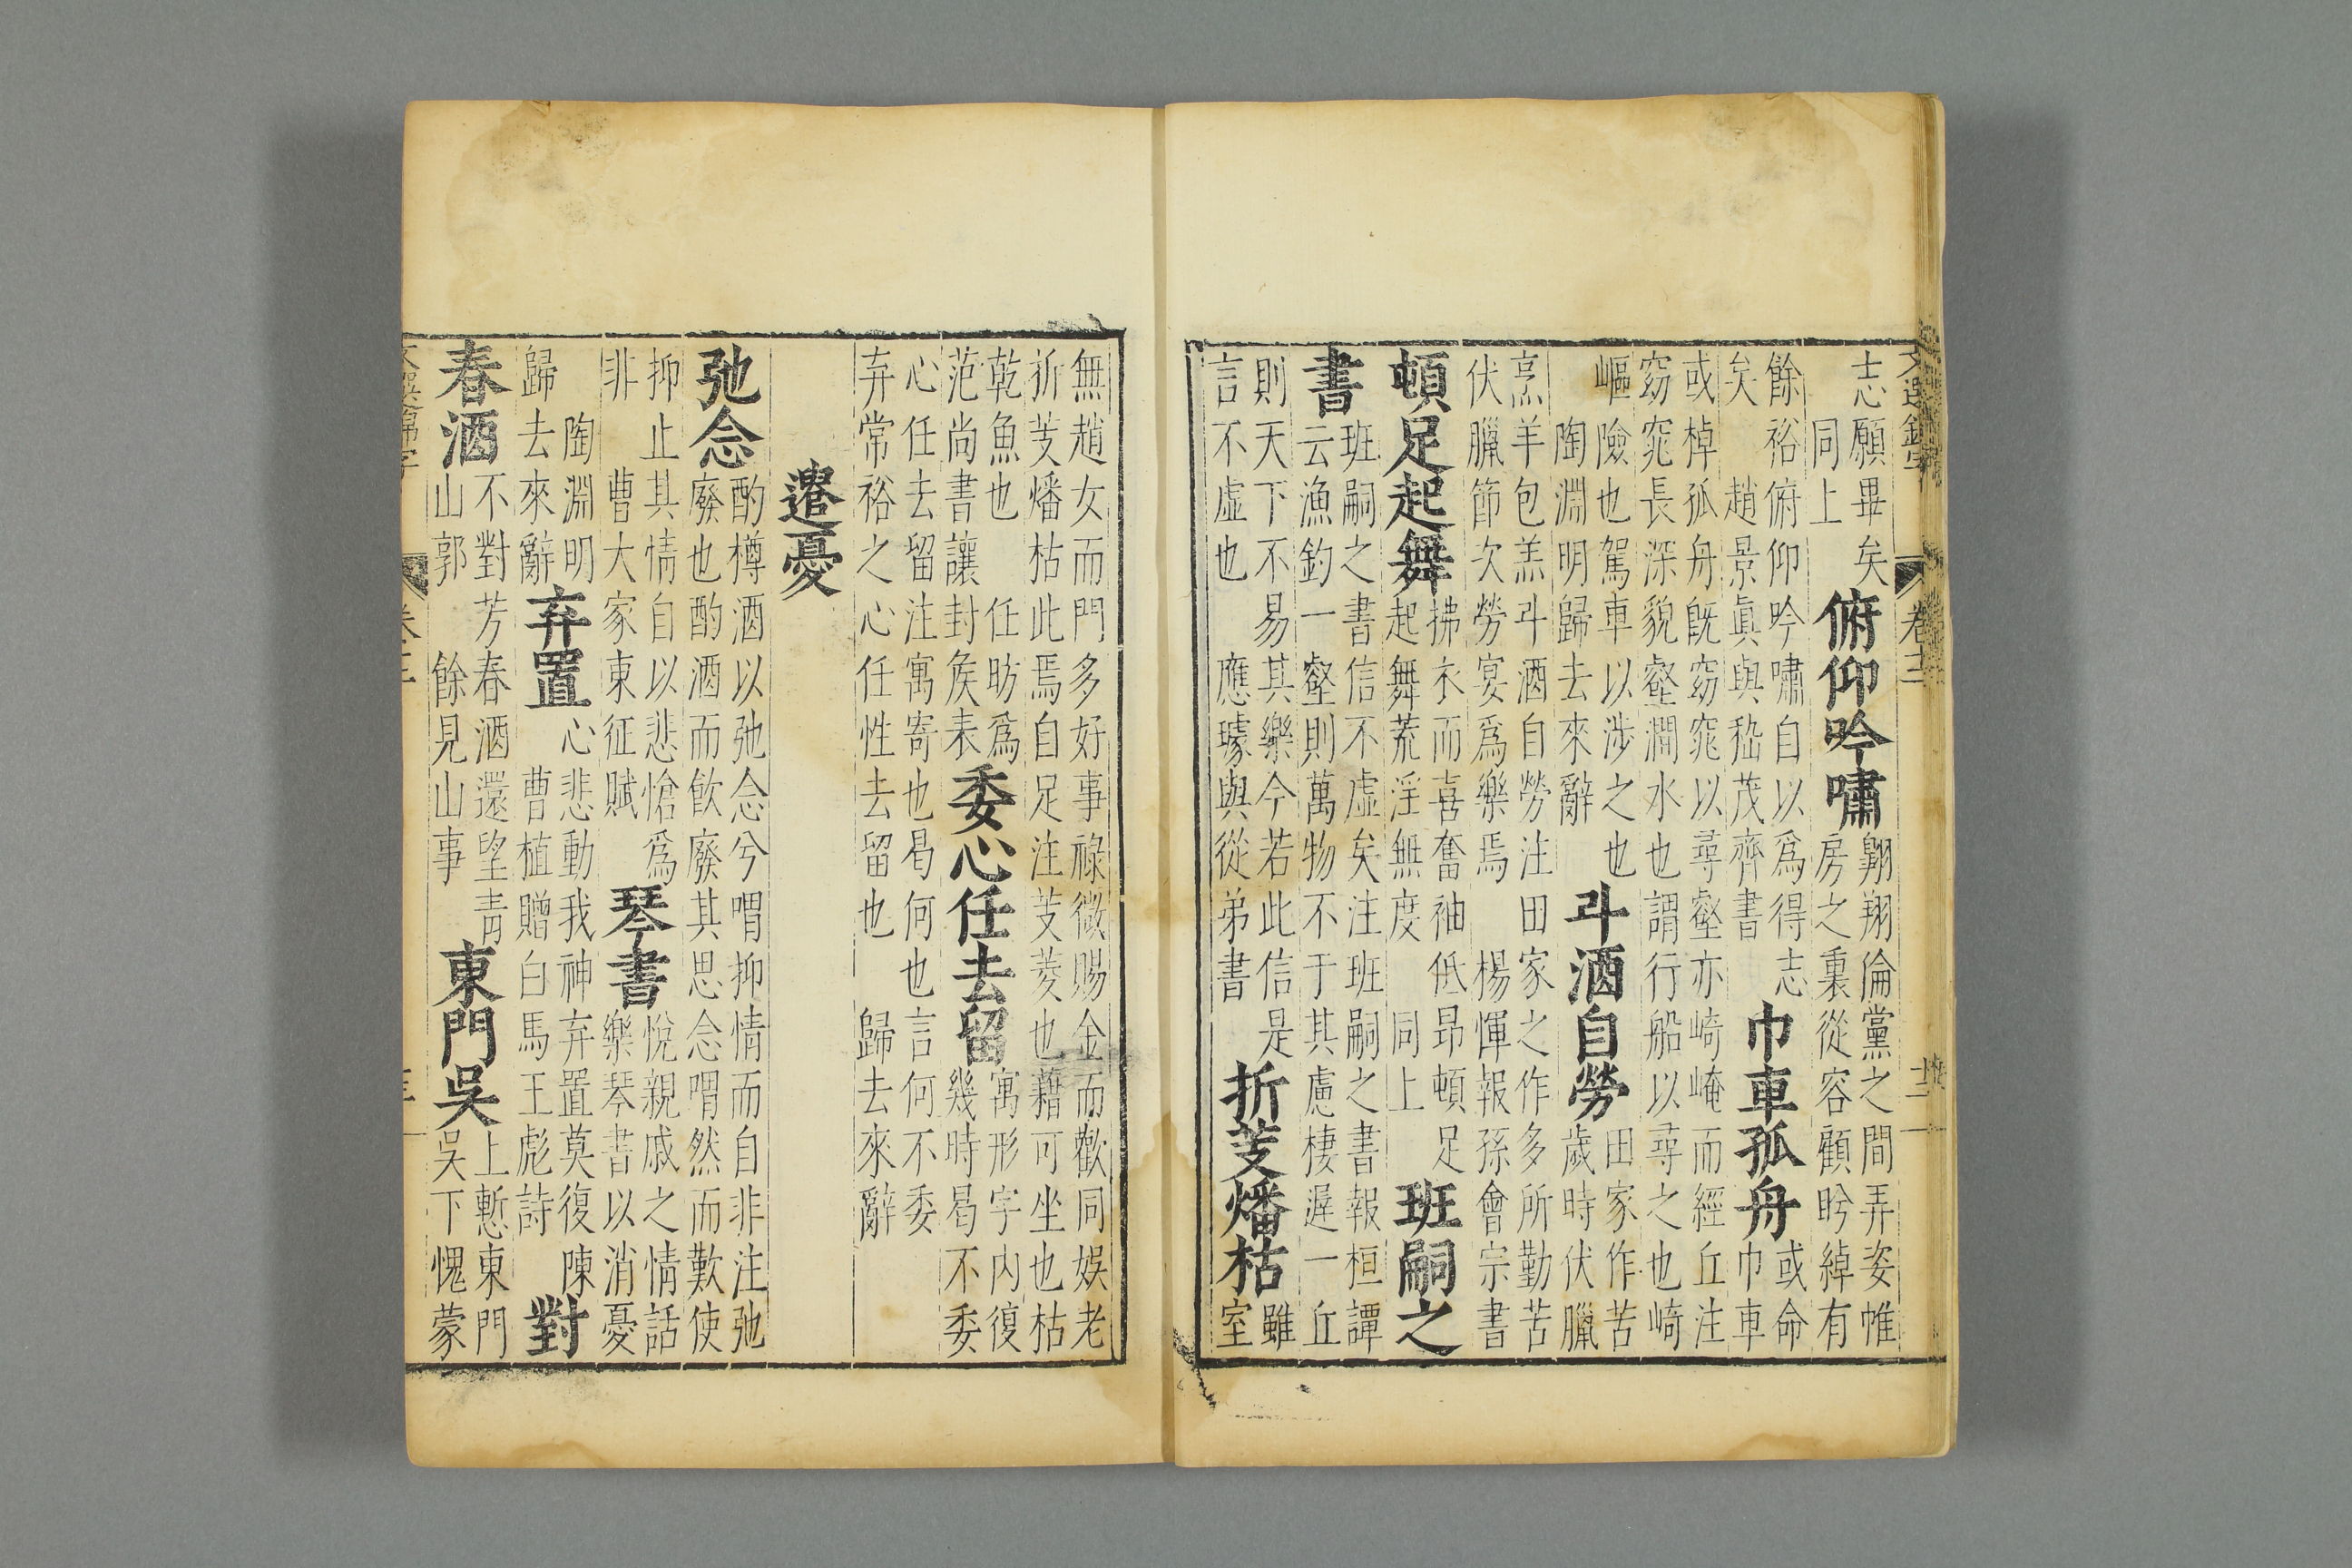 文選錦字 卷三 十二
志願畢矣
同上
俯仰吟嘯
翺翔倫黨之間弄姿帷
房之裏從容顧眄綽有
餘裕俯仰吟嘯自以爲得志
矣　趙景眞與嵇茂齊書
巾車孤舟
或命
巾車
或棹孤舟旣窈窕以尋壑亦崎崦而經丘注
窈窕長深貌壑澗水也謂行船以尋之也崎
嶇險也駕車以涉之也
陶淵明歸去來辭
斗酒自勞
田家作苦
歲時伏臘
烹羊包羔斗酒自勞注田家之作多所勤苦
伏臘節次勞宴爲樂焉　楊惲報孫會宗書
頓足起舞
拂衣而喜奮袖低昂頓足
起舞荒淫無度　同上
班嗣之
書
班嗣之書信不虛矣注班嗣之書報桓譚
云漁釣一壑則萬物不于其慮棲遲一丘
則天下不易其樂今若此信是
言不虛也　應璩與從弟書
折芰燔枯
雖
室
無趙女而門多好事祿微賜金而歡同娛老
折芰燔枯此焉自足注芰菱也藉可坐也枯
乾魚也　任昉爲
范尚書讓封侯表
委心任去留
寓形宇内復
幾時曷不委
心任去留注寓寄也曷何也言何不委
弃常裕之心任性去留也　歸去來辭
遣憂
弛念
酌樽酒以弛念兮喟抑情而自非注弛
廢也酌酒而飲廢其思念喟然而歎使
抑止其情自以悲愴爲
非　曹大家東征賦
琴書
悅親戚之情話
樂琴書以消憂
陶淵明
歸去來辭
弃置
心悲動我神弃置莫復陳
曹植贈白馬王彪詩
對
春酒
不對芳春酒還望青
山郭　餘見山事
東門吳
上慙東門
吳下愧蒙